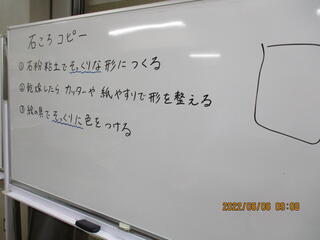 石ころコピー
①石粉粘土でそっくりな形につくる
②乾燥したら カッターや 紙やすりで形を整える
③絵の具でそっくりに色をつける
2022/06/06 09:00